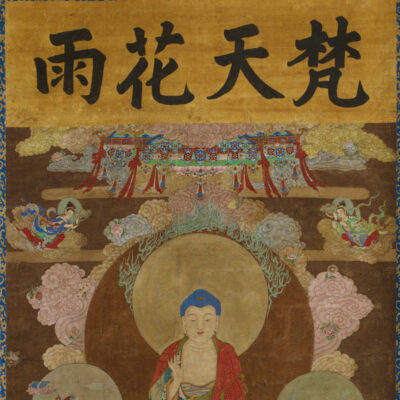 梵天花雨